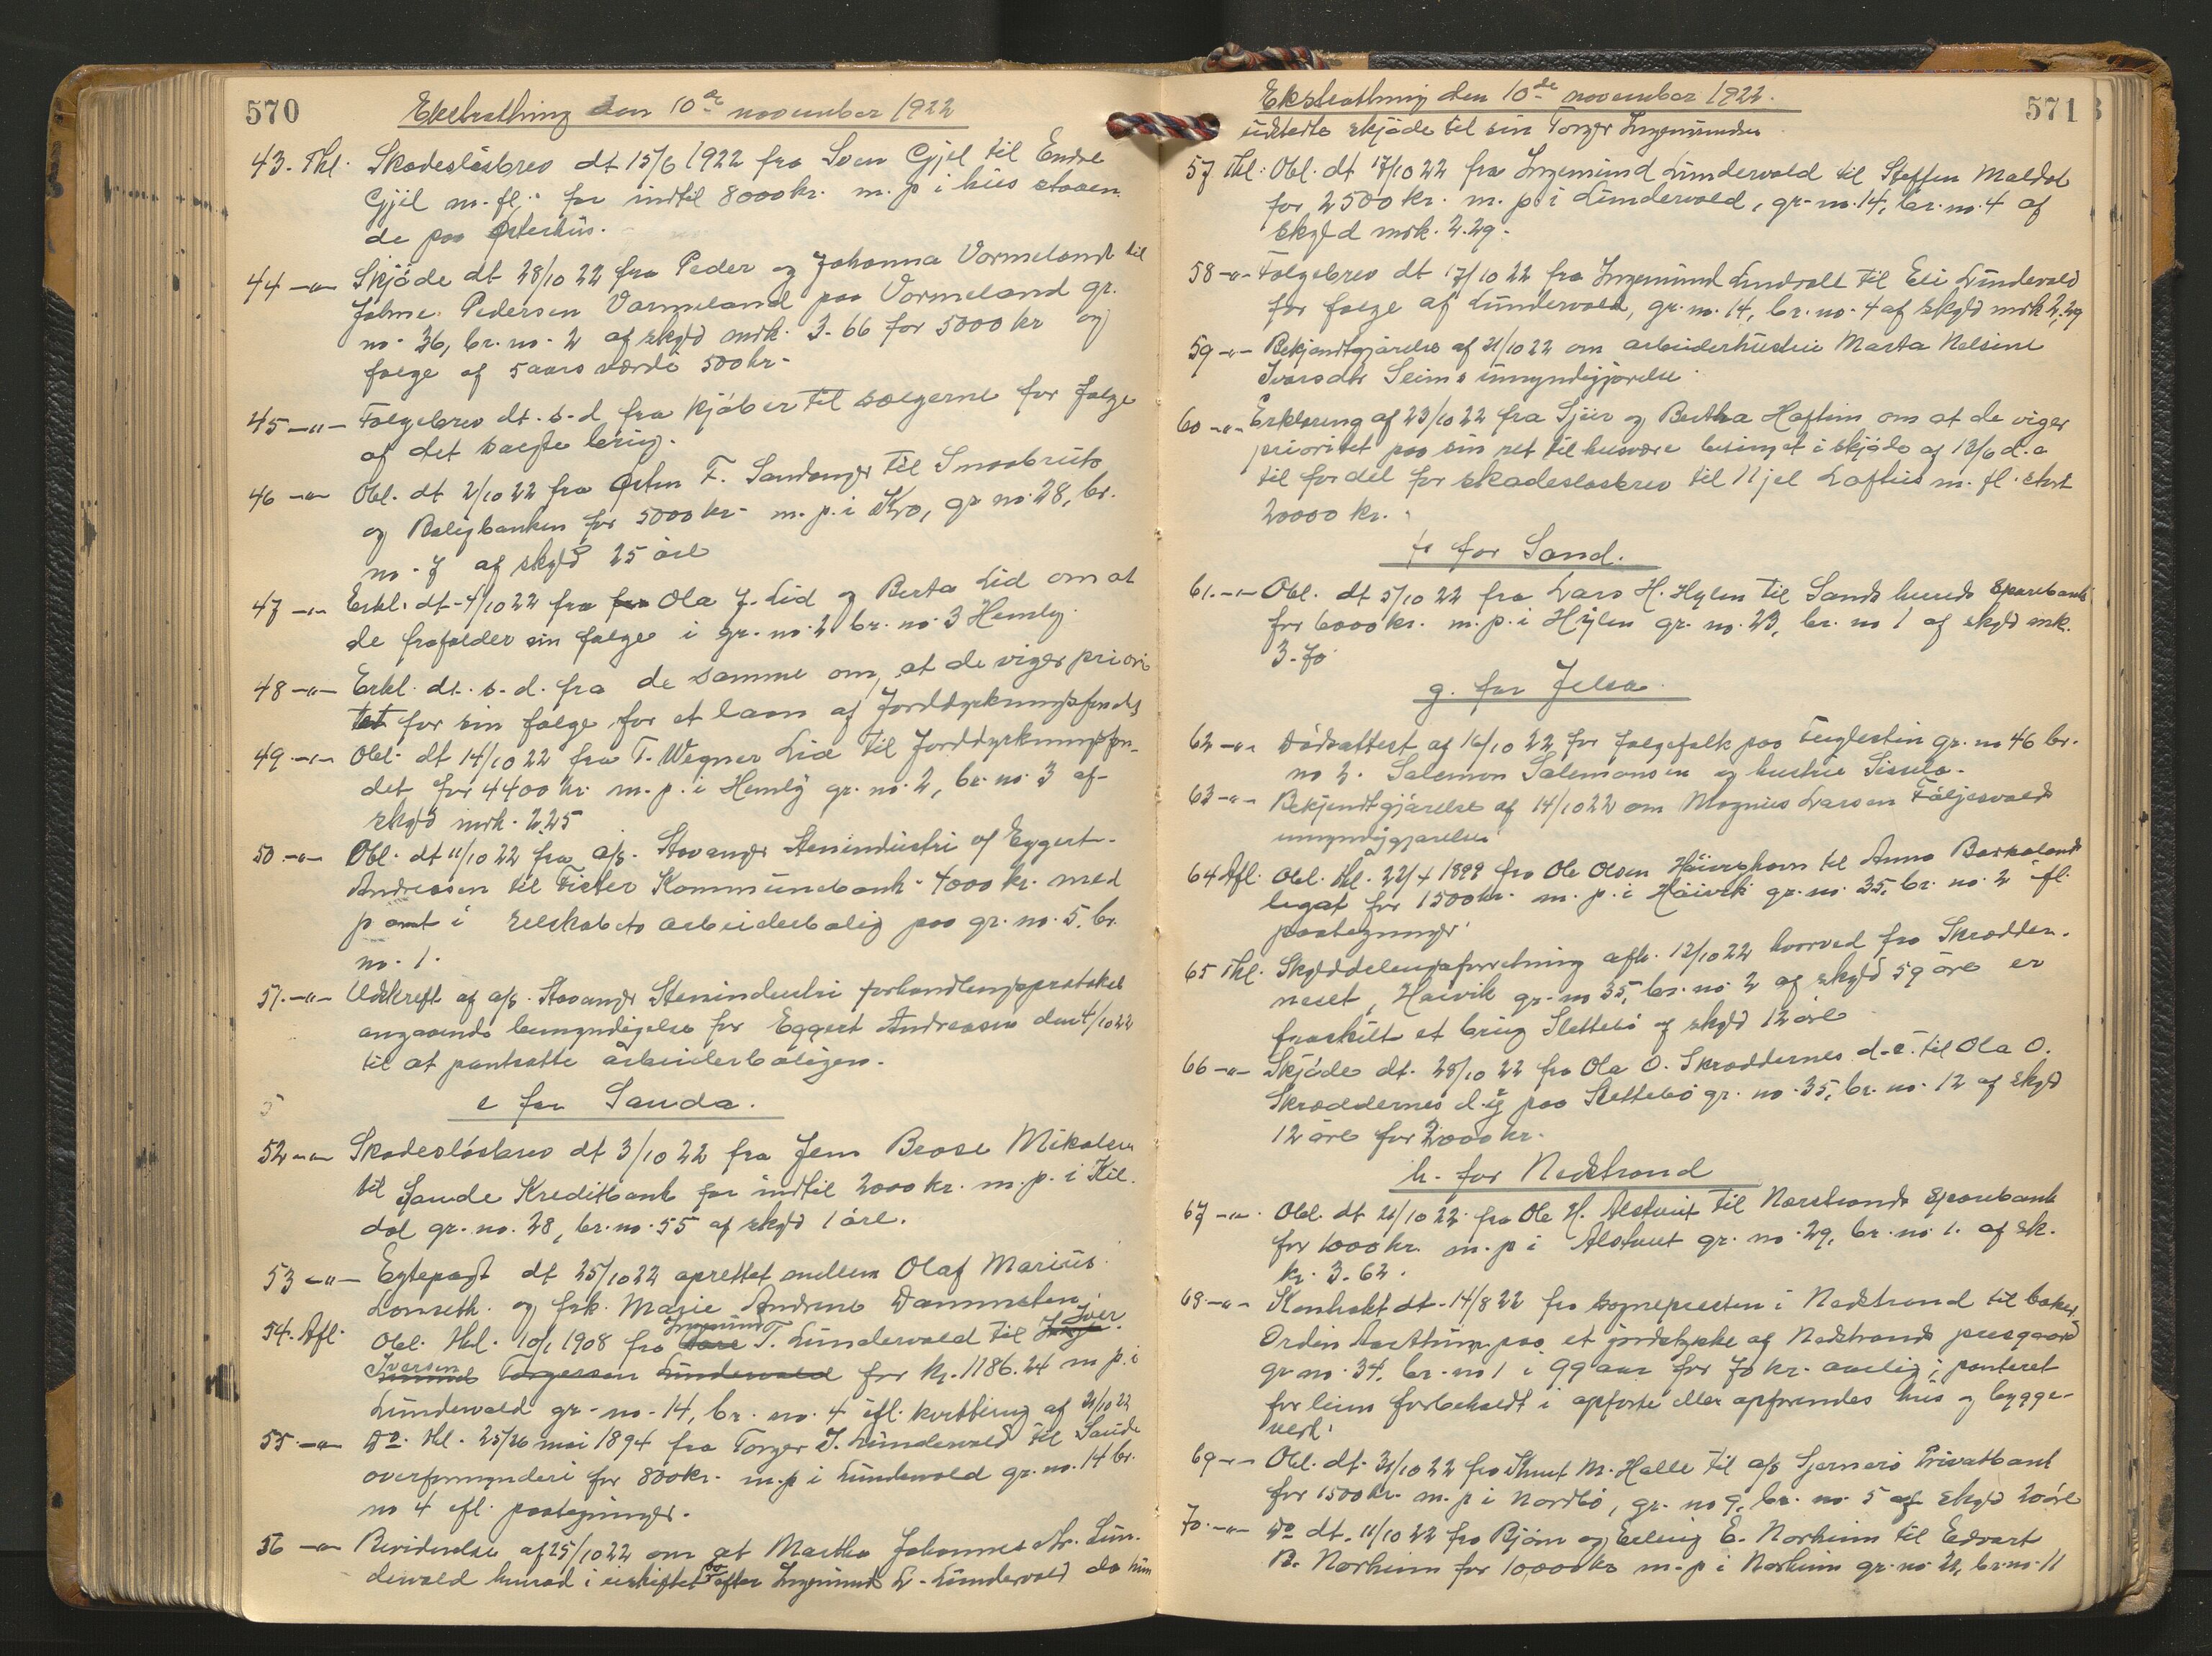 570
Ekstrathing den 10de november 1922
43. Thl. Skadesløsbrev dt 15/6 1922 fra Sven Gjil til Endre
Gjil m. fl. for indtil 8000 kr. m. p i hus staaen
de paa Østerhus.
44 -"- Skjøde dt 28/10 22 fra Peder og Johanna Vormeland til
Johne Pedersen Vormeland paa Vormeland gr.
no. 36, br. no. 2 af skyld mrk. 3.66 for 5000 kr og
følge af 5 aars værdi 500 kr.
45 -"- Følgebrev dt. s. d. fra kjøber til sælgerne for følge
af det sælgte brug.
46 -"- Obl. dt 2/10 22 fra Østen F. Sandanger til Smaabruks
og Boligbanken for 5000 kr. m. p. i Kro, gr no. 28, br.
no. 7 af skyld 25 øre
47 -"- Erkl. dt. 4/10 22 fra fra Ola J. Lid og Berta Lid om at
de frafalder sin følge i gr. no. 2 br. no. 3 Hemly.
48 -"- Erkl. dt. s. d. fra de samme om, at de viger priori
tet for sin følge for et laan af Jorddyrkningsfondet
49 -"- Obl. dt 14/10 22 fra T. Wegner Lie til Jorddyrkningsfon-
det for 4400 kr. m. p. i Hemly gr. no. 2, br. no. 3 af
skyld mrk. 2.25
50 -"- Obl. dt 11/10 22 fra a/s. Stavanger Stenindustri af Eggert
Andreasen til Fister Kommunebank. 4000 kr. med
pant i selskabets arbeiderbolig paa gr. no. 5, br.
no. 1.
51 -"- Udskrift af a/s. Stavanger Stenindustri forhandlingsprotokol
angaaende bemyndigelse for Eggert Andreasen den 4/10 22
til at pantsætte arbeiderboligen.
e for Sauda.
52 -"- Skadesløsbrev dt 3/10 22 fra Jens Beose Mikalsen
til Saude Kreditbank for indtil 2000 kr. m. p. i Kil.
dal gr. no. 28, br. no. 55 af skyld 1 øre.
53 -"- Egtepagt dt 25/10 22 oprettet mellem Olaf Marius
Lomseth. og frk. Marie Andrine Dammsten.
54. Afl. Obl. thl. 10/1 1908 fra Ingemund T. Lundervold til Iver
Iversen Torgersen Lundervold for kr. 1186.24 m p. i
Lundervold gr. no. 14, br. no. 4 ifl. kvittering af 21/10 22
55 -"- Do. thl. 25/26 mai 1894 fra Torger I. Lundervold til Saude
overformynderi for 800 kr. m. p i Lundervold gr. no. 14 br.
no 4 ifl. paategninger.
56 -"- Bevidnelse af 25/10 22 om at Martha Johannesdtr. Lun.
dervold hensad i uskiftet bo efter Ingemund L. Lundervold da hun
571
Ekstrathing den 10de november 1922.
udstedte skjøde til sin Torger Ingemundsen
57 Thl: Obl. dt 17/10 22 fra Ingemund Lundervold til Steffen Maldal
for 2500 kr. m. p. i Lundervold, gr. no. 14, br. no. 4 af
skyld mrk. 2.29.
58 -"- Følgebrev dt 17/10 22 fra Ingemund Lundvoll til Eli Lundervold
for følge af Lundervold, gr. no. 14, br. no. 4 af skyld mrk 2.29
59 -"- Bekjendtgjørelse af 21/10 22 om arbeiderhustru Marta Nelsine
Ivarsdtr Seims umyndiggjørelse.
60 -"- Erklæring af 23/10 22 fra Sjur og Bertha Haftun om at de viger
prioritet paa sin ret til husvære betinget i skjøde af 12/6 d. a
til fordel for skadesløsbrev til Njel Loftus m. fl. stort
20000 kr.
f. for Sand.
61. -"- Obl. dt 5/10 22 fra Lars H. Hylen til Sands herreds Sparebank
for 6000 kr. m. p. i Hylen gr. no. 23, br. no 1 af skyld mk.
3.70
g. for Jelsa.
62 -"- Dødsattest af 16/10 22 for følgefolk paa Fuglestein gr. no 46 br.
no 2. Salemon Salemonsen og hustru Sissela.
63 -"- Bekjendtgjørelse af 14/10 22 om Magnus Larsen Føljesvolds
umyndiggjørelse.
64 Afl. Obl. thl. 22/4 1899 fra Ole Olsen Høivighavn til Anna Barkelands
legat for 1500 kr. m. p. i Høivik gr. no. 35, br. no. 2 ifl.
paategninger.
65 Thl. Skylddelingsforretning afh. 12/10 22 hvorved fra Skrædder.
neset, Høivik gr. no 35, br. no 2 af skyld 59 øre er
fraskilt et brug Slettebø af skyld 12 øre
66 -"- Skjøde dt. 28/10 22 fra Ola O. Skræddernes d. e. til Ola O.
Skræddernes d. y paa Slettebø gr. no. 35, br. no. 12 af skyld
12 øre for 2000 kr.
h. for Nedstrand
67 -"- Obl. dt 21/10 22 fra Ole H. Alstveit til Nærstrands Sparebank
for 1000 kr. m. p i Alstveit gr. no. 29, br. no 1. af sk.
kr. 3.62.
68 -"- Kontrakt dt. 14/8 22 fra sognepresten i Nedstrand til baker
Ordin Aarthun paa et jordstykke af Nedstrands presgaard
gr. no. 34, br. no 1 i 99 aar for 70 kr. aarlig; panteret
for leien forbeholdt i opførte eller opførendes hus og bygge-
verk.
69 -"- Obl. dt. 31/10 22 fra Knut M. Halle til a/s Sjernerø Privatbank
for 1500 kr. m. p i Nordbø, gr. no 9, br. no. 5 af skyld 20 øre
70. -"- Do dt. 11/10 22 fra Bjørn og Erling E. Norheim til Edvart
B. Norheim for 10,000 kr m. p i Norheim gr. no 21, br. no. 11